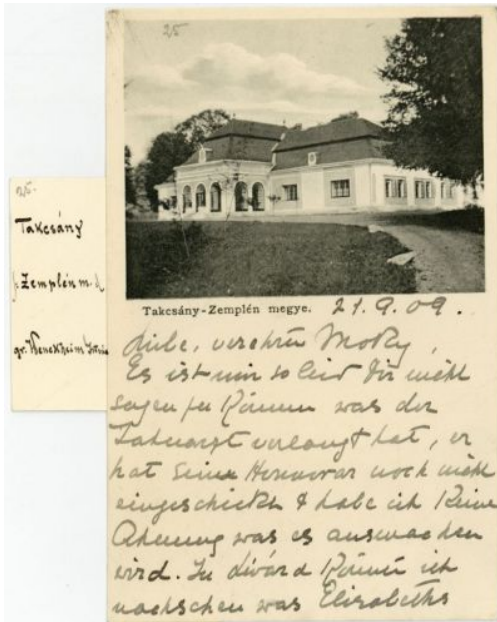 25
25.
Takcsány
Zemplén m.
gr. Wenckheim
Takcsány-Zemplén megye. 21.9.09.
Liebe, verehrte
Es ist mir so leid Dir nicht
sagen zu können was der
Zahnarzt verlangt hat, er
hat seine Honorar noch nicht
eingeschickt & habe ich keine
Ahnung was es ausmachen
wird. In Divárd könnte ich
nachsehen was Elisabeths